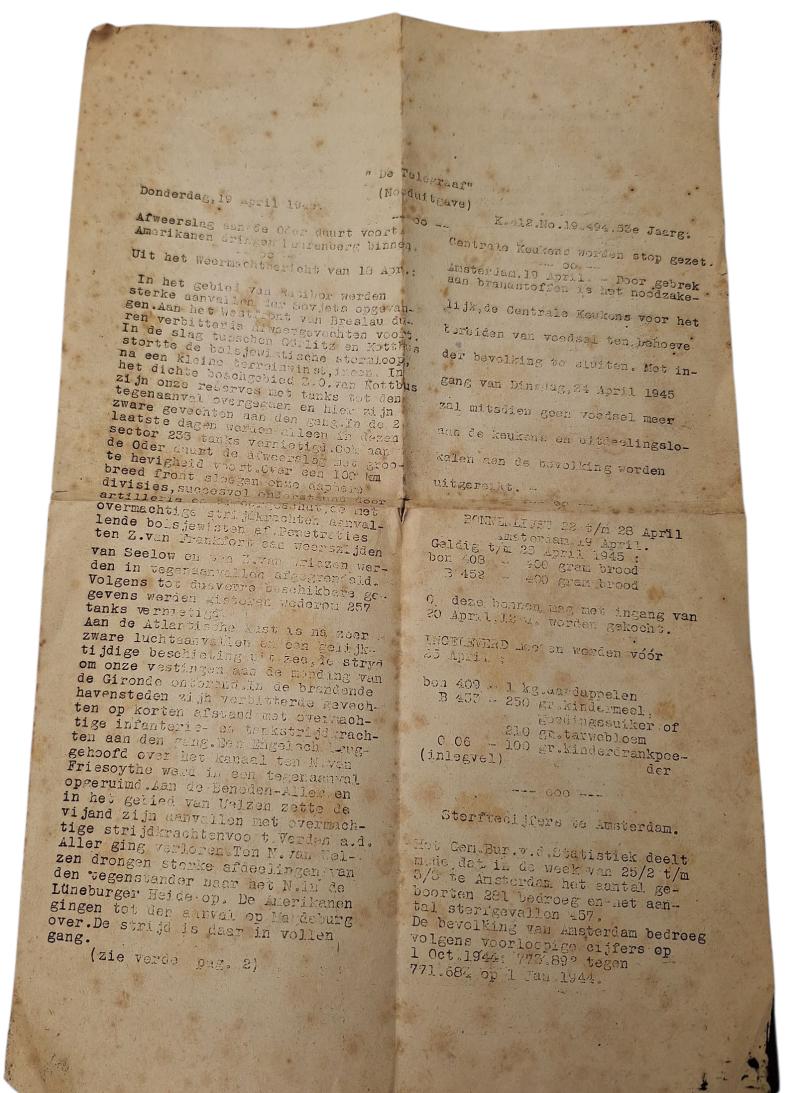 "De Telegraaf"
(Nooduitgave)
Donderdag, 19 April
--- oo ---
K. 412.No.19.494.53e Jaarg.
Afweerslag aan de Oder duurt voort.
Amerikanen dringen binnen.
--- oo ---
Uit het Weermachtbericht van 18 Apr.:
In het gebied van Ratibor werden
sterke aanvallen der Sovjets opgevan-
gen.Aan het Westfront van Breslau du-
ren verbitterde voort.
In de slag tusschen Görlitz en Kottbus
stortte de bolsjewistische stormloop,
na een kleine terreinwinst,ineen. In
het dichte boschgebied Z.O.van Kottbus
zijn onze reserves met tanks tot den
tegenaanval overgegaan en hier zijn
zware gevechten aan den gang.In de 2
laatste dagen werden alleen in dezen
sector 233 tanks vernietigd.Ook aan
de Oder duurt de afweerslag met groo-
te hevigheid voort.Over een 100 km
breed front sloegen onze dappere
divisies,succesvol ondersteund door
artillerie en het
overmachtige strijdkrachten aanval-
lende bolsjewisten af.Penetraties
ten Z.van Frankfort aan weerszijden
van Seelow en ten Z.van Wriezen wer-
den in tegenaanvallen afgegrendeld.
Volgens tot dusverre beschikbare ge-
gevens werden gisteren wederom 257
tanks vernietigd.
Aan de Atlantische kust is na zeer
zware luchtaanvallen en een gelijk-
tijdige beschieting uit zee,de stryd
om onze vestingen aan de monding van
de Gironde ontbrand.in de brandende
havensteden zijn verbitterde gevech-
ten op korten afstand met overmach-
tige infanterie- en tankstrijdkrach-
ten aan den gang.Een Engelsch brug-
gehoofd over het kanaal ten N.van
Friesoythe werd in een tegenaanval
opgeruimd.Aan de Beneden-Aller en
in het gebied van Uelzen zette de
vijand zijn aanvallen met overmach-
tige strijdkrachten voort.Verden a.d.
Aller ging verloren.Ten N.van Uel-
zen drongen sterke afdeelingen van
den tegenstander naar het N.in de
Lüneburger Heide op. De Amerikanen
gingen tot den aanval op Magdeburg
over.De strijd is daar in vollen
gang.
(zie verde pag. 2)
Centrale Keukens worden stop gezet.
--- oo ---
Amsterdam,19 April. - Door gebrek
aan brandstoffen is het noodzake-
lijk,de Centrale Keukens voor het
bereiden van voedsel ten behoeve
der bevolking te sluiten. Met in-
gang van Dinsdag,24 April 1945
zal mitsdien geen voedsel meer
aan de keukens en uitdeelingslo-
kalen aan de bevolking worden
uitgereikt. -
--- oo ---
BONNENLIJST 22 t/m 28 April
Amsterdam,19 April.
Geldig t/m 28 April 1945 :
bon 408 - 400 gram brood
B 452 - 400 gram brood
O, deze bonnen mag met ingang van
20 April, worden gekocht.
INGELEVERD moeten worden vóór
25 April :
bon 409 - 1 kg.aardappelen
B 457 - 250 gr.kindermeel,
voedingssuiker of
210 gr.tarwebloem
O 06 - 100 gr.kinderdrankpoe-
(inlegvel) der
--- ooo ---
Sterftecijfers te Amsterdam.
Het Cen.Bur.v.d.Statistiek deelt
mede,dat in de week van 25/2 t/m
3/3 te Amsterdam het aantal ge-
boorten 281 bedroeg en het aan-
tal sterfgevallen 457.
De bevolking van Amsterdam bedroeg
volgens voorloopige cijfers op
1 Oct.1944: tegen
771.684 op 1 Jan.1944.